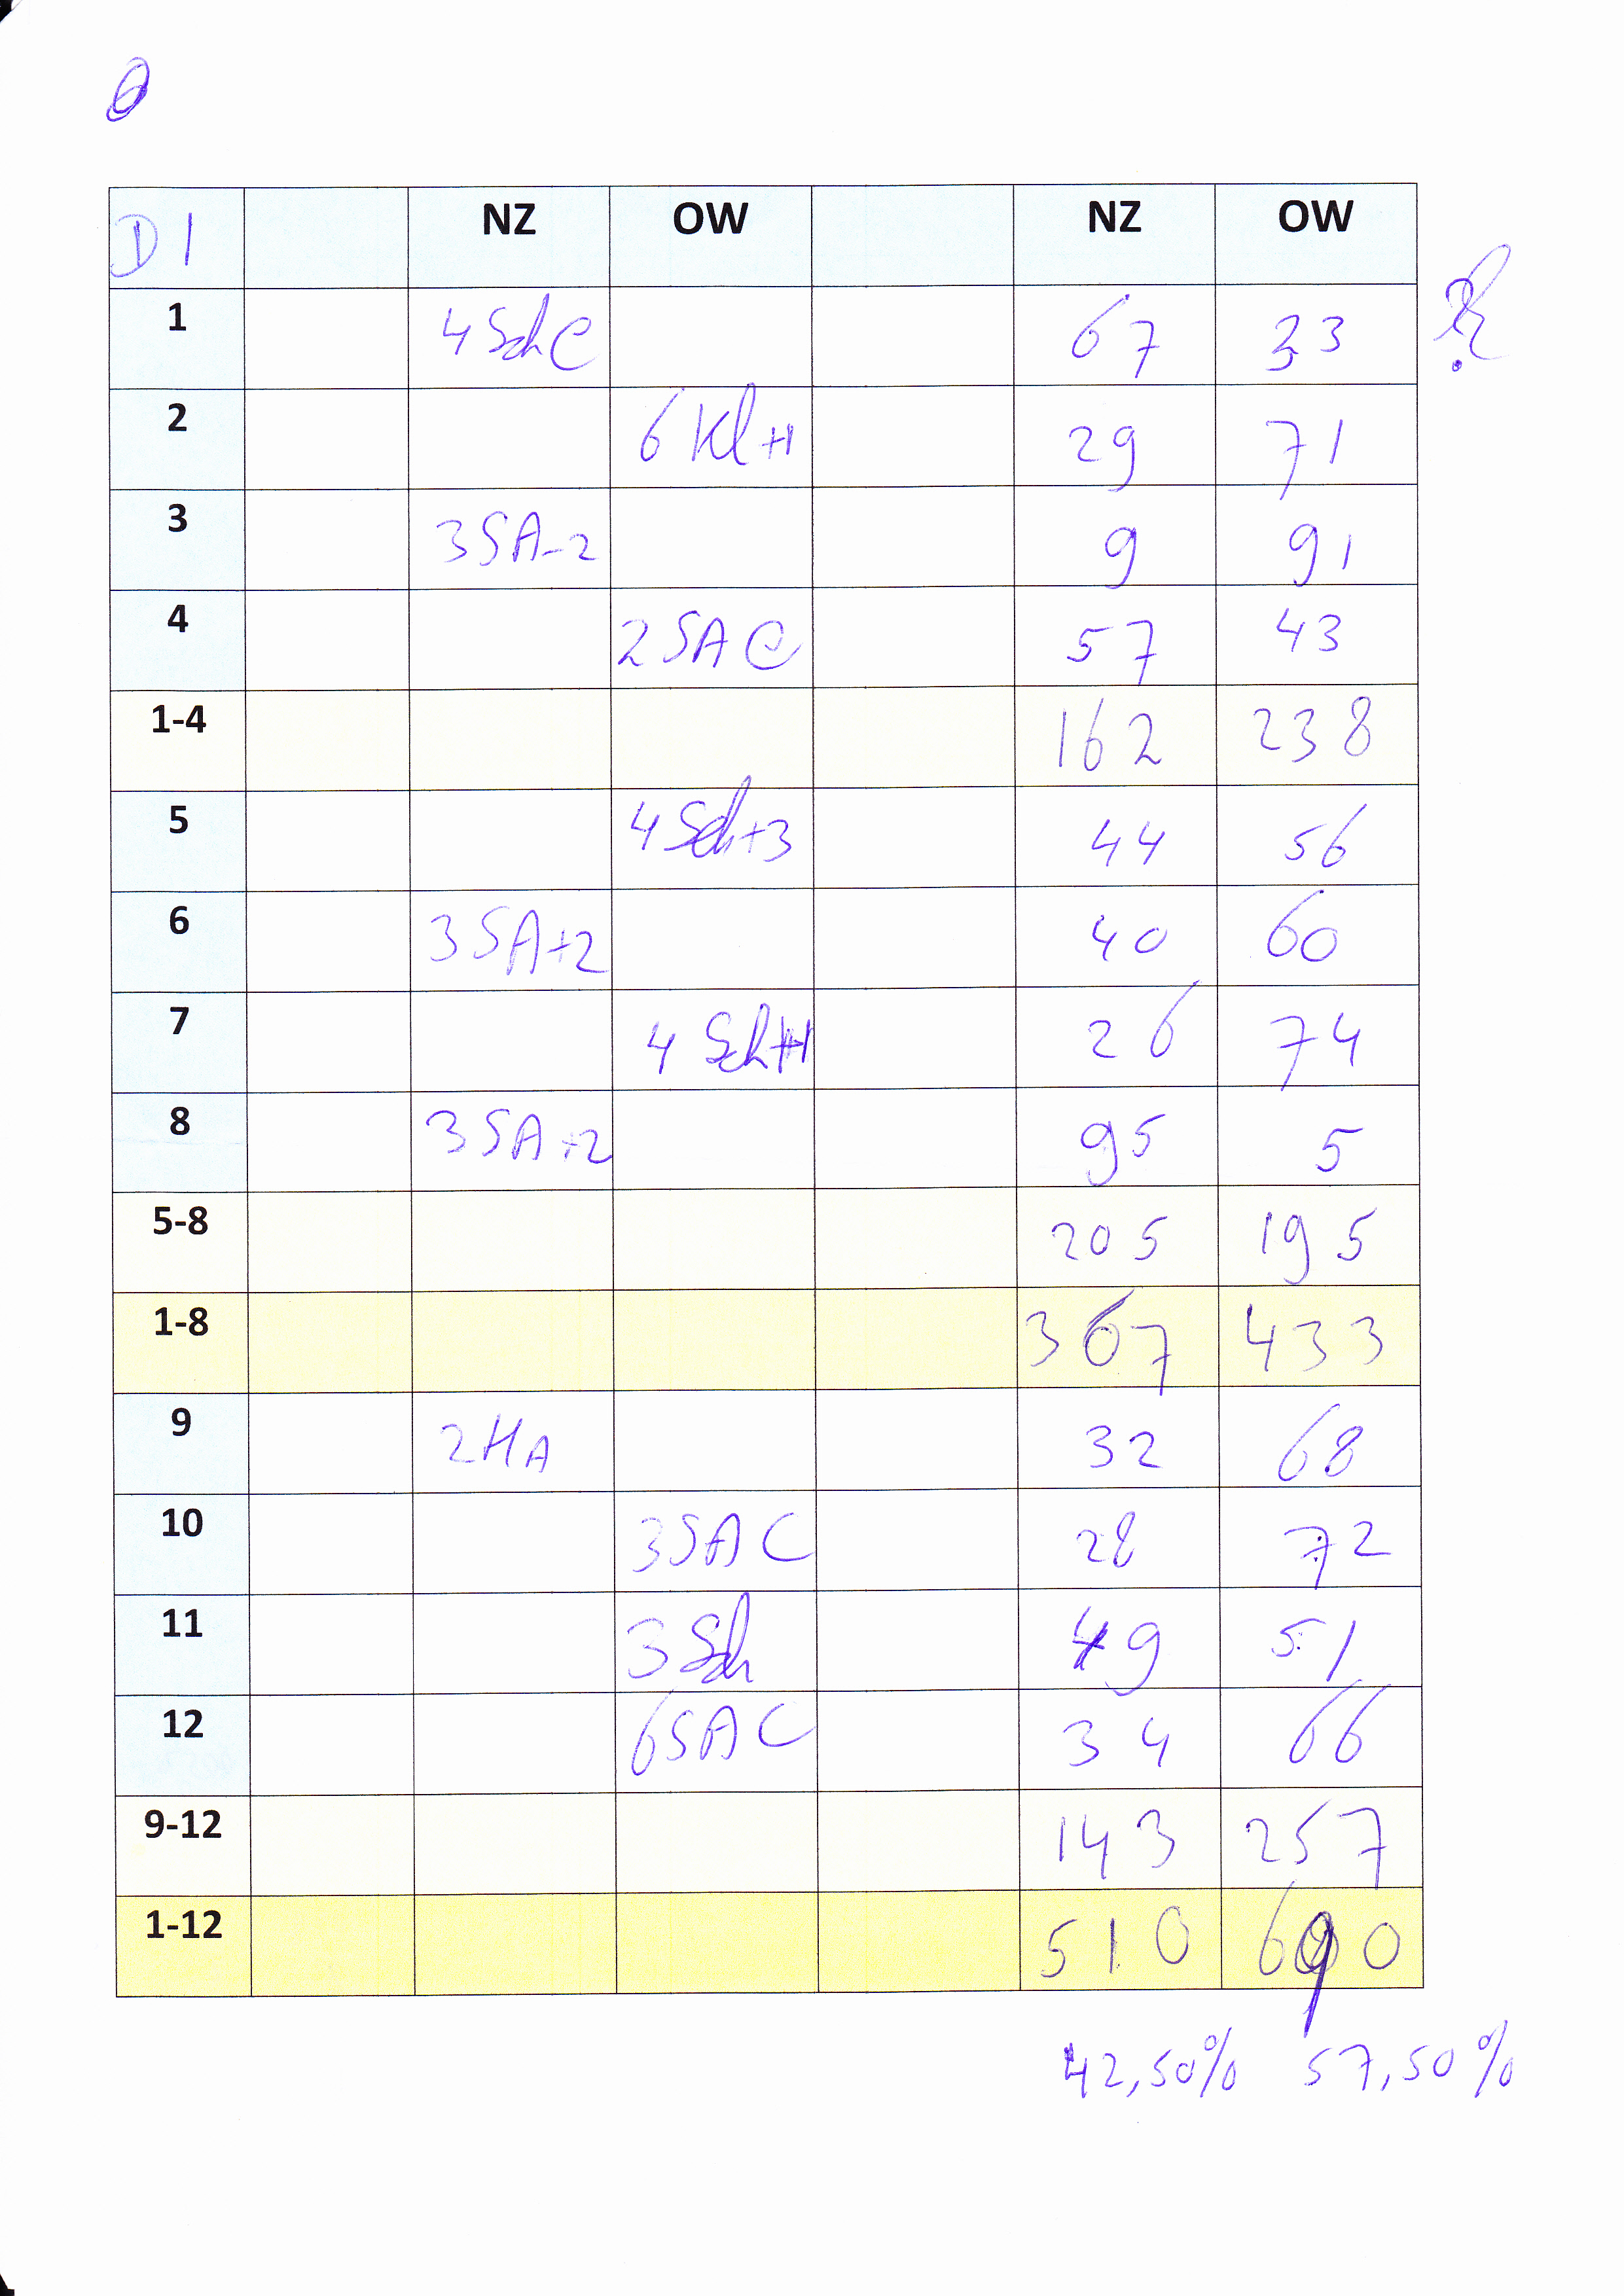 D1 NZ OW NZ OW
1 4 Sch C 67 33
2 6 Kl+1 29 71
3 3SA-2 9 91
4 2SA C 57 43
1-4 162 238
5 4 Sch+3 44 56
6 3SA+2 40 60
7 4 Sch+1 26 74
8 3SA+2 95 5
5-8 205 195
1-8 367 433
9 2HA 32 68
10 3SAC 28 72
11 3 Sch 49 51
12 6SAC 34 66
9-12 143 257
1-12 510 690
42,50% 57,50%